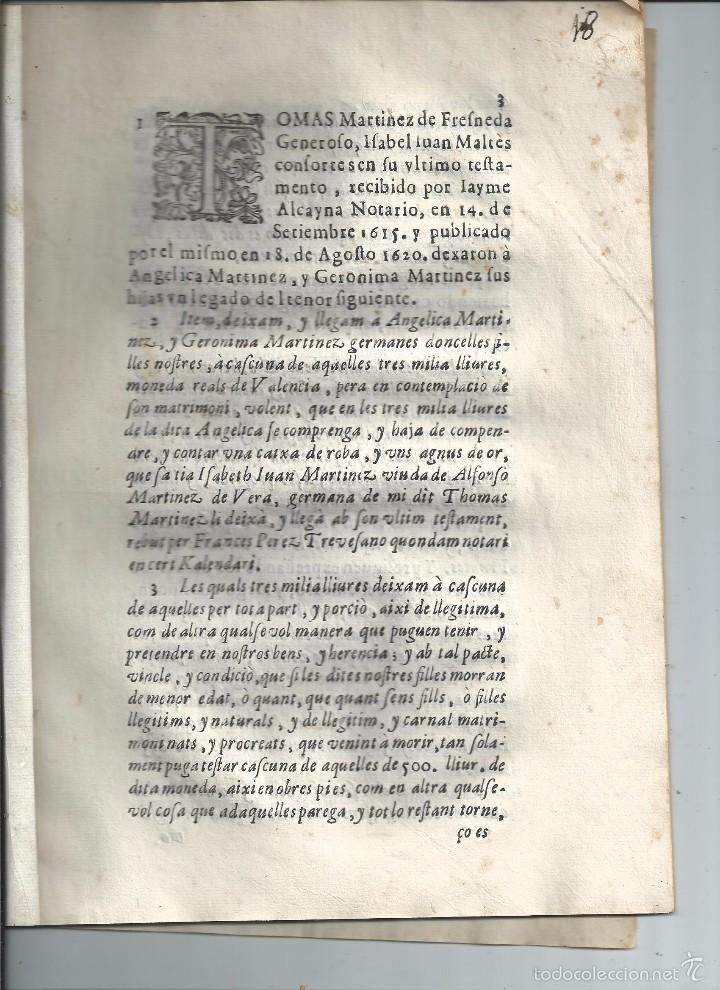 18
3
1 TOMAS Martinez de Fresneda
Generoso, Isabel Iuan Maltès
consortes en su vltimo testa-
mento, recibido por Iayme
Alcayna Notario, en 14. de
Setiembre 1615. y publicado
por el mismo en 18. de Agosto 1620. dexaron à
Angelica Martinez, y Geronima Martinez sus
hijas vn legado del tenor siguiente.
2 Item, deixam, y llegam à Angelica Marti-
nez, y Geronima Martinez germanes doncelles fi-
lles nostres, à cascuna de aquelles tres milia lliures,
moneda reals de Valencia, pera en contemplaciò de
son matrimoni, volent, que en les tres milia lliures
de la dita Angelica se comprenga, y haja de compen-
dre, y contar vna caixa de roba, y vns agnus de or,
que sa tia Isabeth Iuan Martinez viuda de Alfonso
Martinez de Vera, germana de mi dit Thomas
Martinez li deixà, y llegà ab son vltim testament,
rebut per Frances Perez Trevesano quondam notari
en cert Kalendari.
3 Les quals tres milia lliures deixam à cascuna
de aquelles per tota part, y porciò, aixi de llegitima,
com de altra qualsevol manera que puguen tenir, y
pretendre en nostros bens, y herencia; y ab tal pacte,
vincle, y condiciò, que si les dites nostres filles morran
de menor edat, ò quant, que quant sens fills, ò filles
llegitims, y naturals, y de llegitim, y carnal matri-
moni nats, y procreats, que venint a morir, tan sola-
ment puga testar cascuna de aquelles de 500. lliur. de
dita moneda, aixi en obres pies, com en altra qualse-
vol cosa que ad aquelles parega, y tot lo restant torne,
ço es
todocoleccion.net